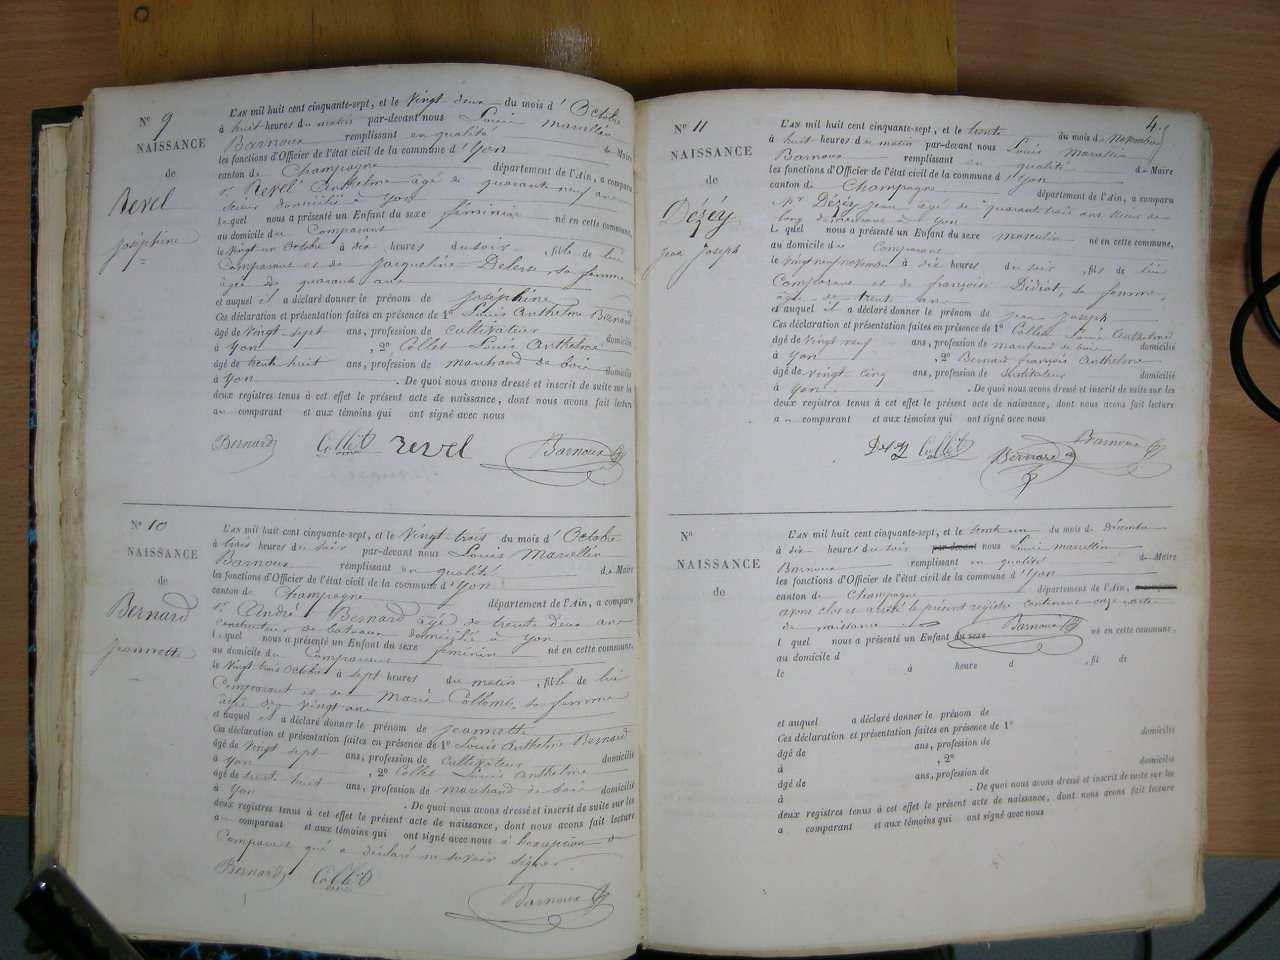 N° 9
NAISSANCE
de
Revel
Joséphine
L'AN mil huit cent cinquante-sept, et le Vingt-deux du mois d' Octobre
à huit heures du matin par-devant nous Louis Marcellin
Barnoux remplissant en qualité de Maire
les fonctions d'Officier de l'état civil de la commune d' Yon
canton de Champagne département de l'Ain, a comparu
Sr Revel Anthelme âgé de quarante neuf ans
domicilié à Yon
lequel nous a présenté un Enfant du sexe féminin né en cette commune,
au domicile du Comparant
le vingt un Octobre à dix heures du soir, fille de lui
Comparant et de Jacqueline sa femme
âgée de quarante ans
et auquel il a déclaré donner le prénom de Joséphine
Ces déclaration et présentation faites en présence de 1° Louis Anthelme Bernard
âgé de Vingt-sept ans, profession de Cultivateur domicilié
à Yon, 2° Collet Louis Anthelme
âgé de trente huit ans, profession de marchand de bois domicilié
à Yon. De quoi nous avons dressé et inscrit de suite sur les
deux registres tenus à cet effet le présent acte de naissance, dont nous avons fait lecture
au comparant et aux témoins qui ont signé avec nous
Bernard Collet revel Barnoux
N° 10
NAISSANCE
de
Bernard
Jeannette
L'AN mil huit cent cinquante-sept, et le Vingt-trois du mois d' Octobre
à trois heures du soir par-devant nous Louis Marcellin
Barnoux remplissant en qualité de Maire
les fonctions d'Officier de l'état civil de la commune d' Yon
canton de Champagne département de l'Ain, a comparu
Sr André Bernard âgé de trente deux ans
constructeur de bateaux domicilié à Yon
lequel nous a présenté un Enfant du sexe féminin né en cette commune,
au domicile du Comparant
le Vingt trois Octobre à sept heures du matin, fille de lui
Comparant et de Marie Collomb sa femme
âgée de vingt ans
et auquel il a déclaré donner le prénom de Jeannette
Ces déclaration et présentation faites en présence de 1° Louis Anthelme Bernard
âgé de Vingt sept ans, profession de Cultivateur domicilié
à Yon, 2° Collet Louis Anthelme
âgé de trente huit ans, profession de marchand de bois domicilié
à Yon. De quoi nous avons dressé et inscrit de suite sur les
deux registres tenus à cet effet le présent acte de naissance, dont nous avons fait lecture
au comparant et aux témoins qui ont signé avec nous à l'exception du
Comparant qui a déclaré ne savoir signer
Bernard Collet
Barnoux
4
N° 11
NAISSANCE
de
Dézéy
Jean Joseph
L'AN mil huit cent cinquante-sept, et le trente du mois de Novembre
à huit heures du matin par-devant nous Louis Marcellin
Barnoux remplissant en qualité de Maire
les fonctions d'Officier de l'état civil de la commune d' Yon
canton de Champagne département de l'Ain, a comparu
Sr Dézéy Jean âgé de quarante trois ans scieur de
long demeurant à Yon
lequel nous a présenté un Enfant du sexe masculin né en cette commune,
au domicile du Comparant
le vingt neuf novembre à dix heures du soir, fils de lui
Comparant et de françoise sa femme,
âgée de trente ans
et auquel il a déclaré donner le prénom de Jean Joseph
Ces déclaration et présentation faites en présence de 1° Collet Louis Anthelme
âgé de vingt neuf ans, profession de marchand de bois domicilié
à Yon, 2° Bernard françois Anthelme
âgé de vingt cinq ans, profession de instituteur domicilié
à Yon. De quoi nous avons dressé et inscrit de suite sur les
deux registres tenus à cet effet le présent acte de naissance, dont nous avons fait lecture
au comparant et aux témoins qui ont signé avec nous
Dézéy Collet Bernard Barnoux
N°
NAISSANCE
de
L'AN mil huit cent cinquante-sept, et le trente un du mois de décembre
à dix heures du soir par-devant nous Louis Marcellin
Barnoux remplissant en qualité de Maire
les fonctions d'Officier de l'état civil de la commune d' Yon
canton de Champagne département de l'Ain,
avons clos et arrêté le présent registre contenant onze actes
de naissance Barnoux
l quel nous a présenté un Enfant du sexe né en cette commune,
au domicile d
le à heure d , fil de
et auquel a déclaré donner le prénom de
Ces déclaration et présentation faites en présence de 1°
âgé de ans, profession de domicilié
à , 2°
âgé de ans, profession de domicilié
à . De quoi nous avons dressé et inscrit de suite sur les
deux registres tenus à cet effet le présent acte de naissance, dont nous avons fait lecture
a comparant et aux témoins qui ont signé avec nous